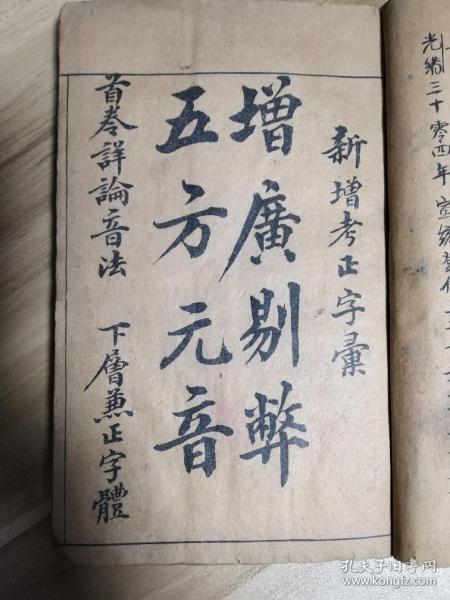 光緒三十零四年宣統
新增考正字彙
增廣剔弊
五方元音
首卷詳論音法 下層兼正字體
孔夫子旧书网
www.kongfz.com